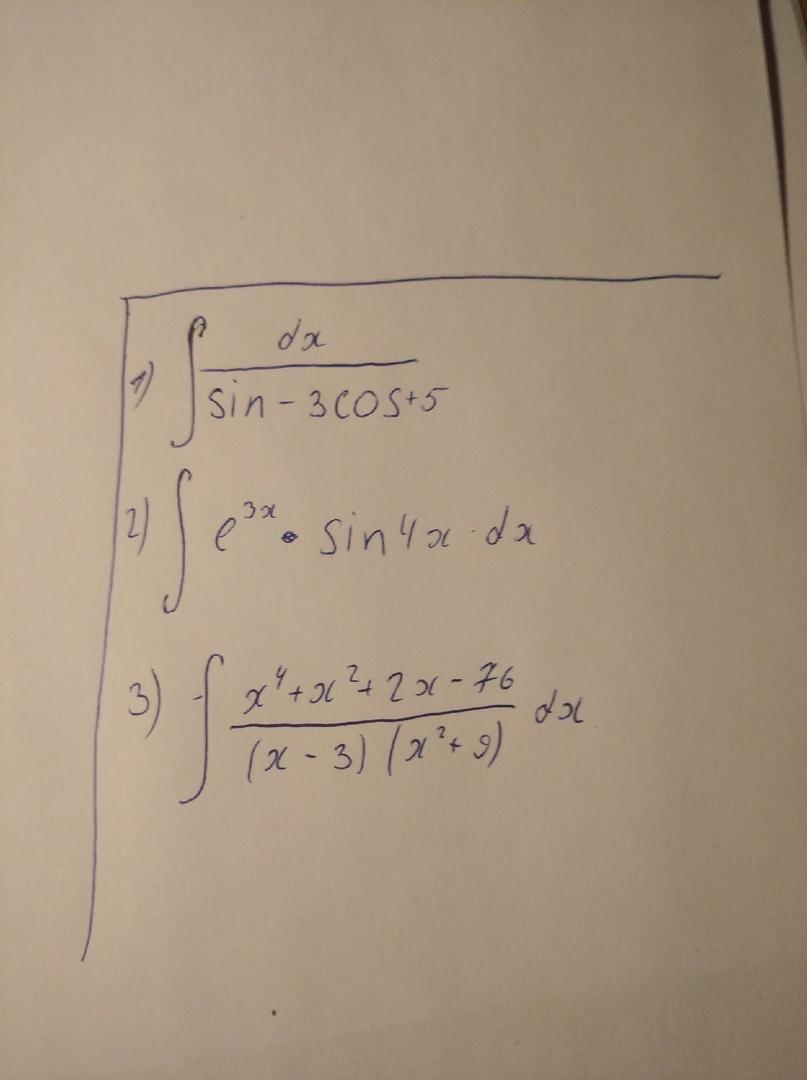 1) ∫ dx / sin - 3cos+5
2) ∫ e^3x • sin4x · dx
3) ∫ x^4+x^2+2x-76 / (x-3)(x^2+9) dx